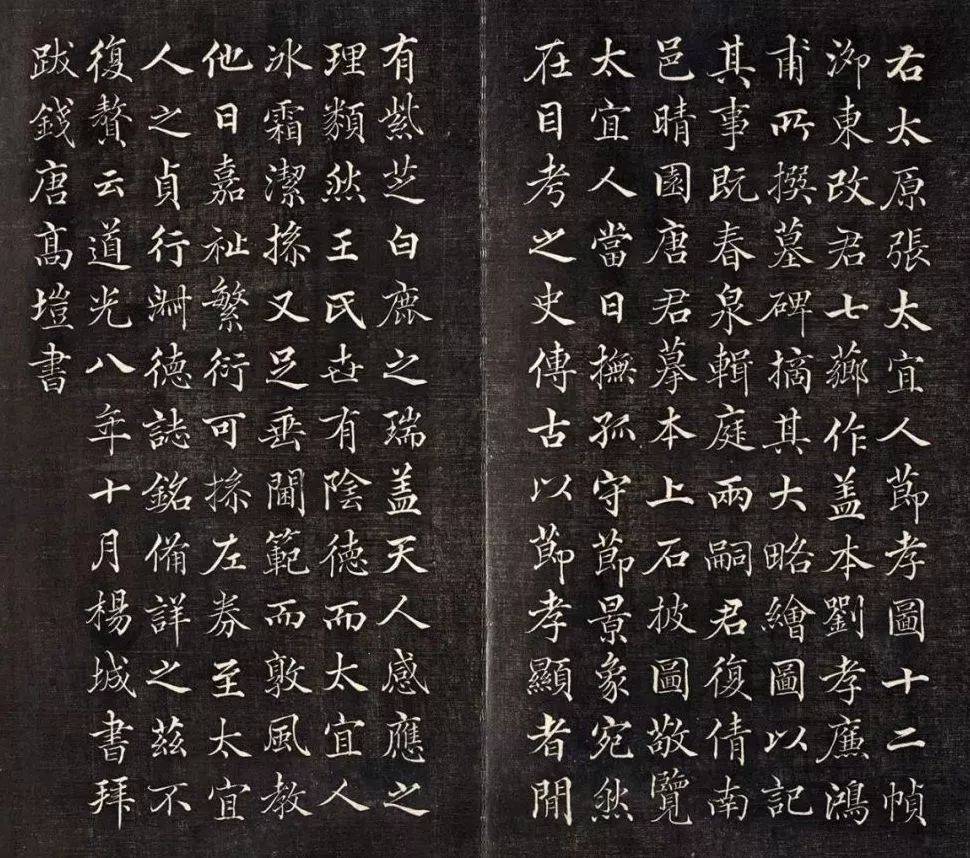 右太原張太宜人節孝圖十二幀
泖東改君七薌作盖本劉孝廉鴻
甫所撰墓碑摘其大略繪圖以記
其事既春泉輯庭兩嗣君復倩南
邑晴園唐君摹本上石披圖敬覽
太宜人當日撫孤守節景象宛然
在目考之史傳古以節孝顯者間
有紫芝白鹿之瑞盖天人感應之
理類然王氏世有陰德而太宜人
冰霜潔操又足垂閫範而敦風教
他日嘉祉繁衍可操左券至太宜
人之貞行淑德誌銘備詳之茲不
復贅云道光八年十月楊城書拜
跋錢唐高塏書